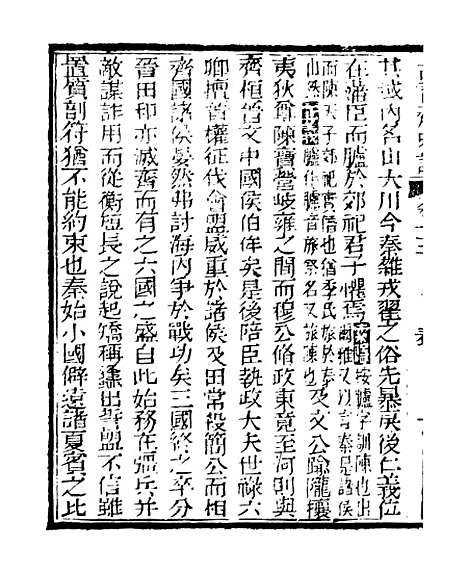 其域內名山大川今秦雜戎翟之俗先暴戾後仁義位
在藩臣而臚於郊祀君子懼焉索隱按臚字訓陳也出爾雅文以言秦是諸侯
而陳天子郊祀實僭也猶季氏旅於泰山然正義臚作臚音旅祭名又旅陳也及文公踰隴攘
夷狄尊陳寶營岐雍之間而穆公脩政東竟至河則與
齊桓晉文中國侯伯侔矣是後陪臣執政大夫世祿六
卿擅晉權征伐會盟威重於諸侯及田常殺簡公而相
齊國諸侯晏然弗討海內爭於戰功矣三國終之卒分
晉田和亦滅齊而有之六國之盛自此始務在彊兵并
敵謀詐用而從衡短長之說起矯稱蠭出誓盟不信雖
置質剖符猶不能約束也秦始小國僻遠諸夏賓之比